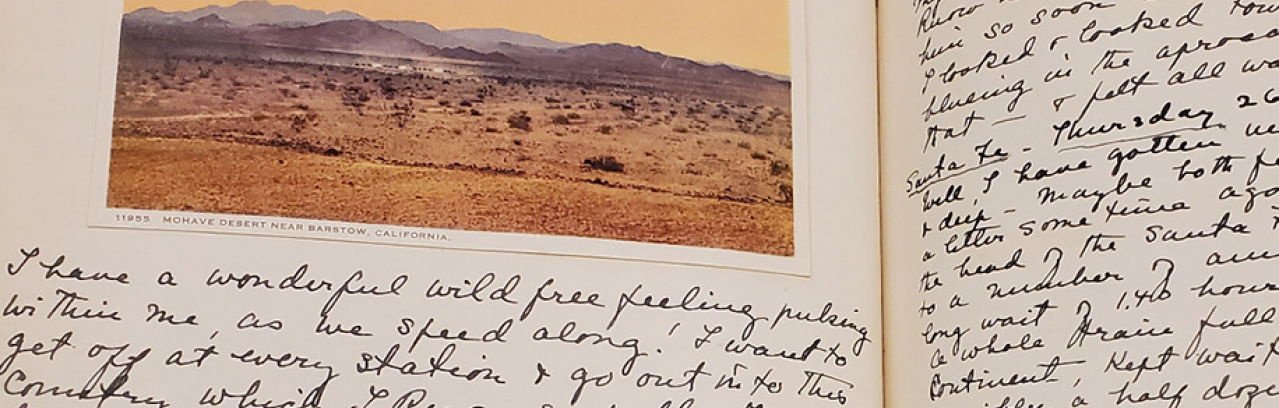 11955 MOHAVE DESERT NEAR BARSTOW, CALIFORNIA.
I have a wonderful wild free feeling pulsing
within me, as we speed along. I want to
get off at every station & go out into this
country which I
know
him so soon
I looked & looked
blueing in the
that – & felt all
Santa Fe – Thursday 26
Well, I have gotten
& deep – maybe both
a letter some time ago
the head of the Santa
to a number of
long wait of 1,40 hours
a whole train full
Continent, kept
a half